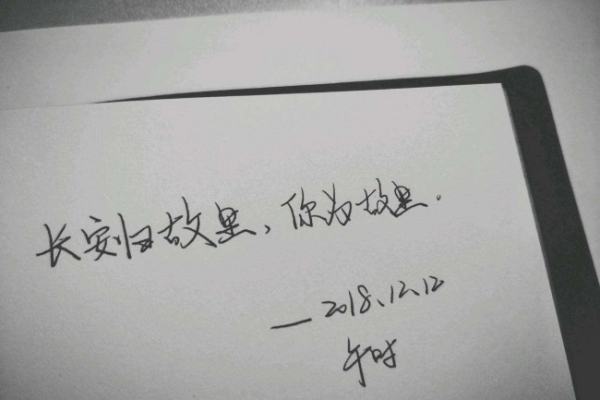 长安归故里，你为故里.
—2018.12.12
午时